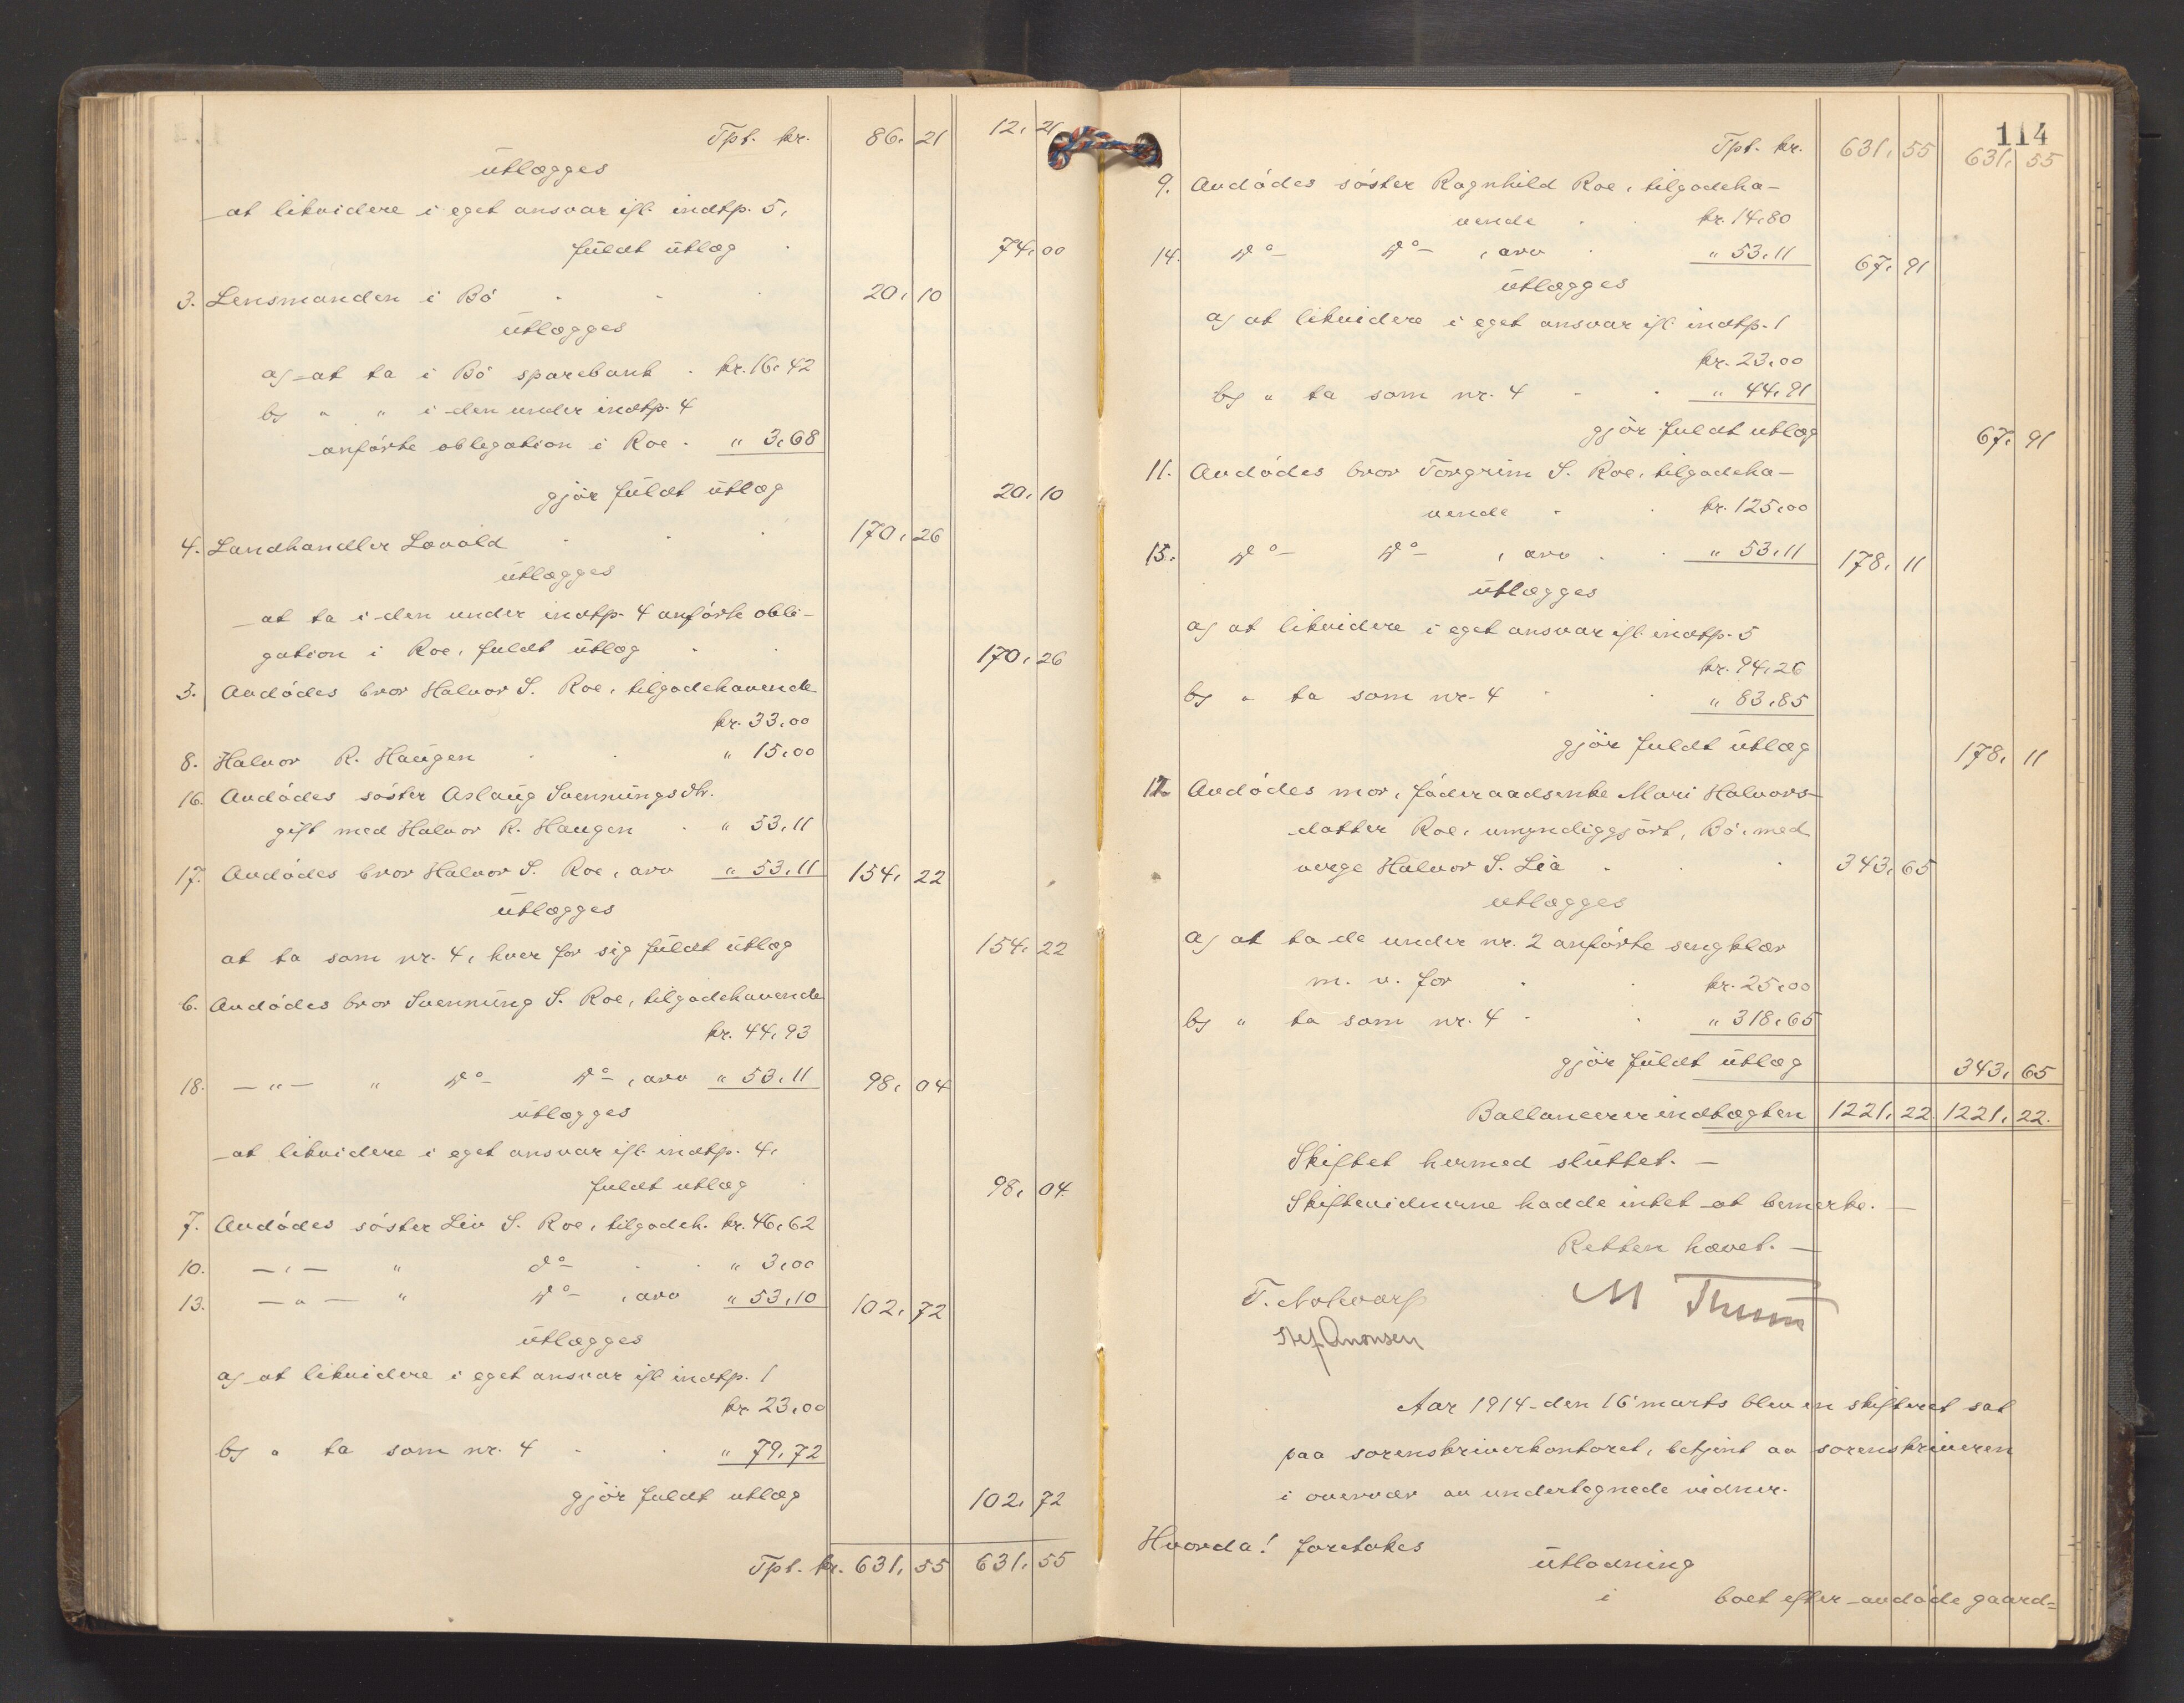 Tpt. kr. 86, 21 12, 21
ütlægges
at likvidere i eget ansvar ifl. indtp. 5,
füldt ütlæg 74,00
3. Lensmanden i Bö 20, 10
ütlægges
a) at ta i Bö sparebank kr. 16,42
b) " " i den under indtp. 4
anförte obligation i Roe " 3,68
gjör füldt ütlæg 20, 10
4. Landhandler Lovald 170, 26
ütlægges
at ta i den under indtp. 4 anförte obli-
gation i Roe, fuldt ütlæg 170, 26
3. Avdödes bror Halvor S. Roe, tilgodehavende
kr. 33,00
8. Halvor R. Haügen " 15,00
16. Avdödes söster Aslaüg Svennüngsdtr.
gift med Halvor R. Haugen " 53,11
17. Avdödes bror Halvor S. Roe, arv " 53,11 154, 22
ütlægges
at ta som nr. 4, hver for sig füldt ütlæg 154, 22
6. Avdödes bror Svennüng S. Roe, tilgodehavende
kr. 44,93
18. —"— " do do, arv " 53,11 98, 04
ütlægges
at likvidere i eget ansvar ifl. indtp. 4,
fuldt utlæg 98, 04
7. Avdödes söster Liv S. Roe, tilgodeh. kr. 46,62
10. —"— " do " 3,00
13. —"— " do, arv " 53,10 102, 72
ütlægges
a) at likvidere i eget ansvar ifl. indtp. 1
kr. 23,00
b) " ta som nr. 4 " 79,72
gjör fuldt utlæg 102, 72
Tpt. kr. 631, 55 631, 55
114
Tpt. kr. 631, 55 631, 55
9. Avdödes söster Ragnhild Roe, tilgodeha-
vende kr. 14,80
14. do do, arv " 53,11 67, 91
ütlægges
a) at likvidere i eget ansvar ifl. indtp. 1
kr. 23,00
b) " ta som nr. 4 " 44,91
gjör fuldt utlæg 67, 91
11. Avdödes bror Torgrim S. Roe, tilgodeha-
vende kr. 125,00
15. do do, arv " 53,11 178, 11
ütlægges
a) at likvidere i eget ansvar ifl. indtp. 5
kr. 94,26
b) " ta som nr. 4 " 83,85
gjör fuldt ütlæg 178, 11
12. Avdödes mor, föderaadsenke Mari Halvors-
datter Roe, umyndiggjört, Bö, med
verge Halvor S. Lia 343, 65
utlægges
a) at ta de under nr. 2 anförte sengklær
m. v. for kr. 25,00
b) " ta som nr. 4 " 318,65
gjör füldt ütlæg 343, 65
Ballancerer indtægten 1221, 22 1221, 22.
Skiftet hermed slüttet. —
Skiftevidnerne hadde intet at bemerke. —
Retten hævet. —
Aar 1914 den 16 marts blev en skifteret sat
paa sorenskriverkontoret, betjent av sorenskriveren
i overvær av undertegnede vidner.
Hvorda! foretokes
ütlodning
i boet efter avdöde gaard=